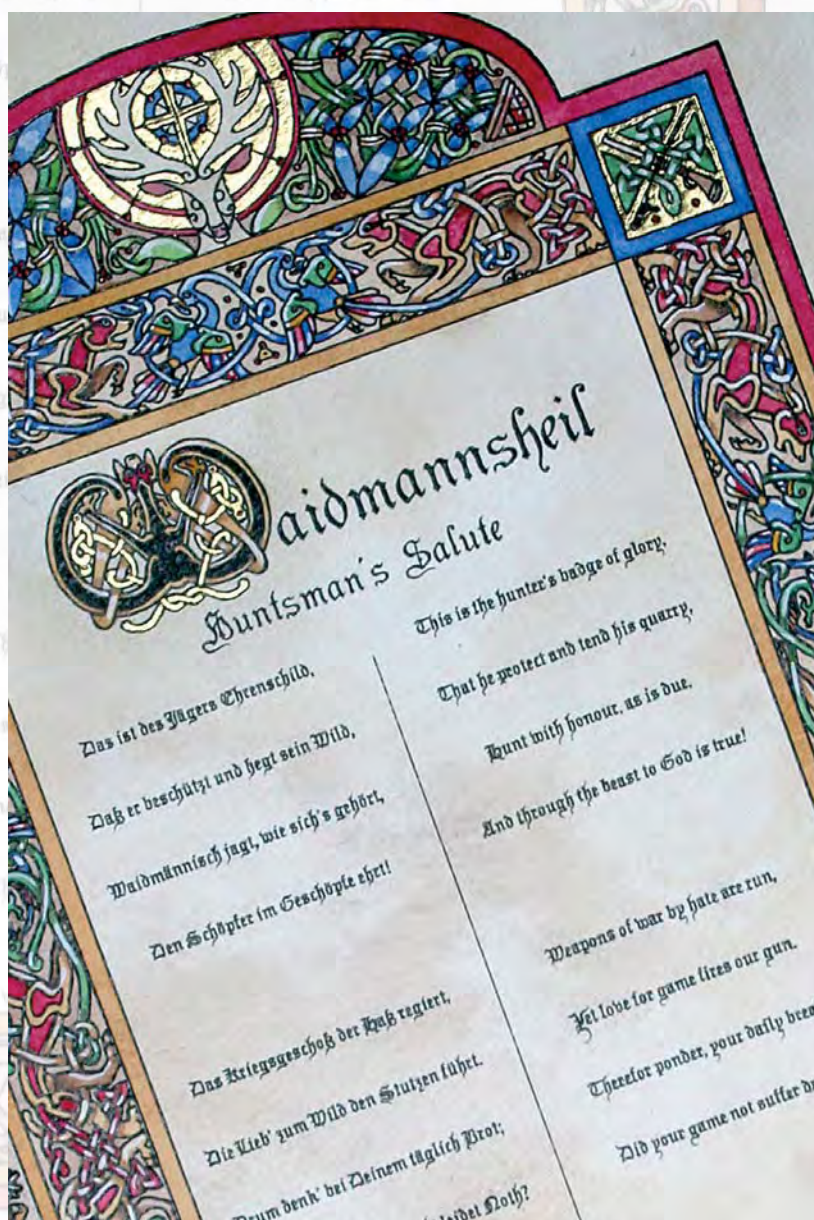 Waidmannsheil
Huntsman's Salute
Das ist des Jägers Ehrenschild,
Daß er beschützt und hegt sein Wild,
Waidmännisch jagt, wie sich's gehört,
Den Schöpfer im Geschöpfe ehrt!
Das Kriegsgeschoß der Haß regiert,
Die Lieb' zum Wild den Stutzen führt.
Drum denk' bei Deinem täglich Brot;
leidet Noth?
This is the hunter's badge of glory,
That he protect and tend his quarry,
Hunt with honour, as is due,
And through the beast to God is true!
Weapons of war by hate are run,
Yet love for game fires our gun.
Therefor ponder, your daily
Did your game not suffer